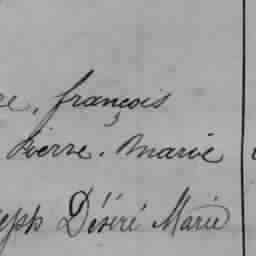 re, françois
Pierre. Marie
seph Désiré Marie